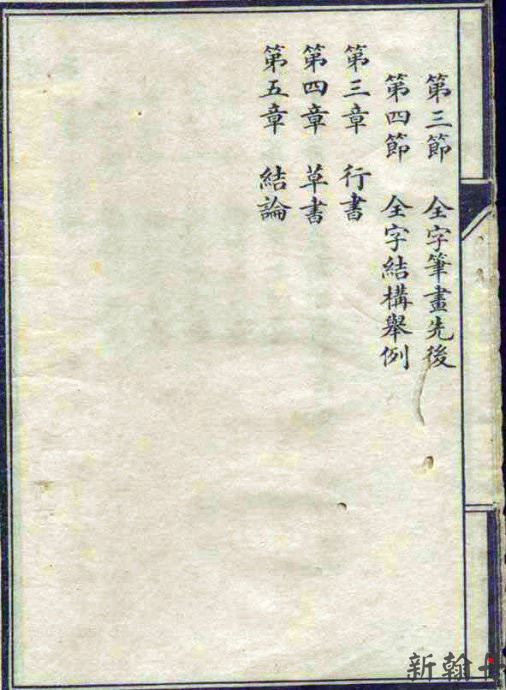 第三節 全字筆畫先後
第四節 全字結構舉例
第三章 行書
第四章 草書
第五章 結論
新翰